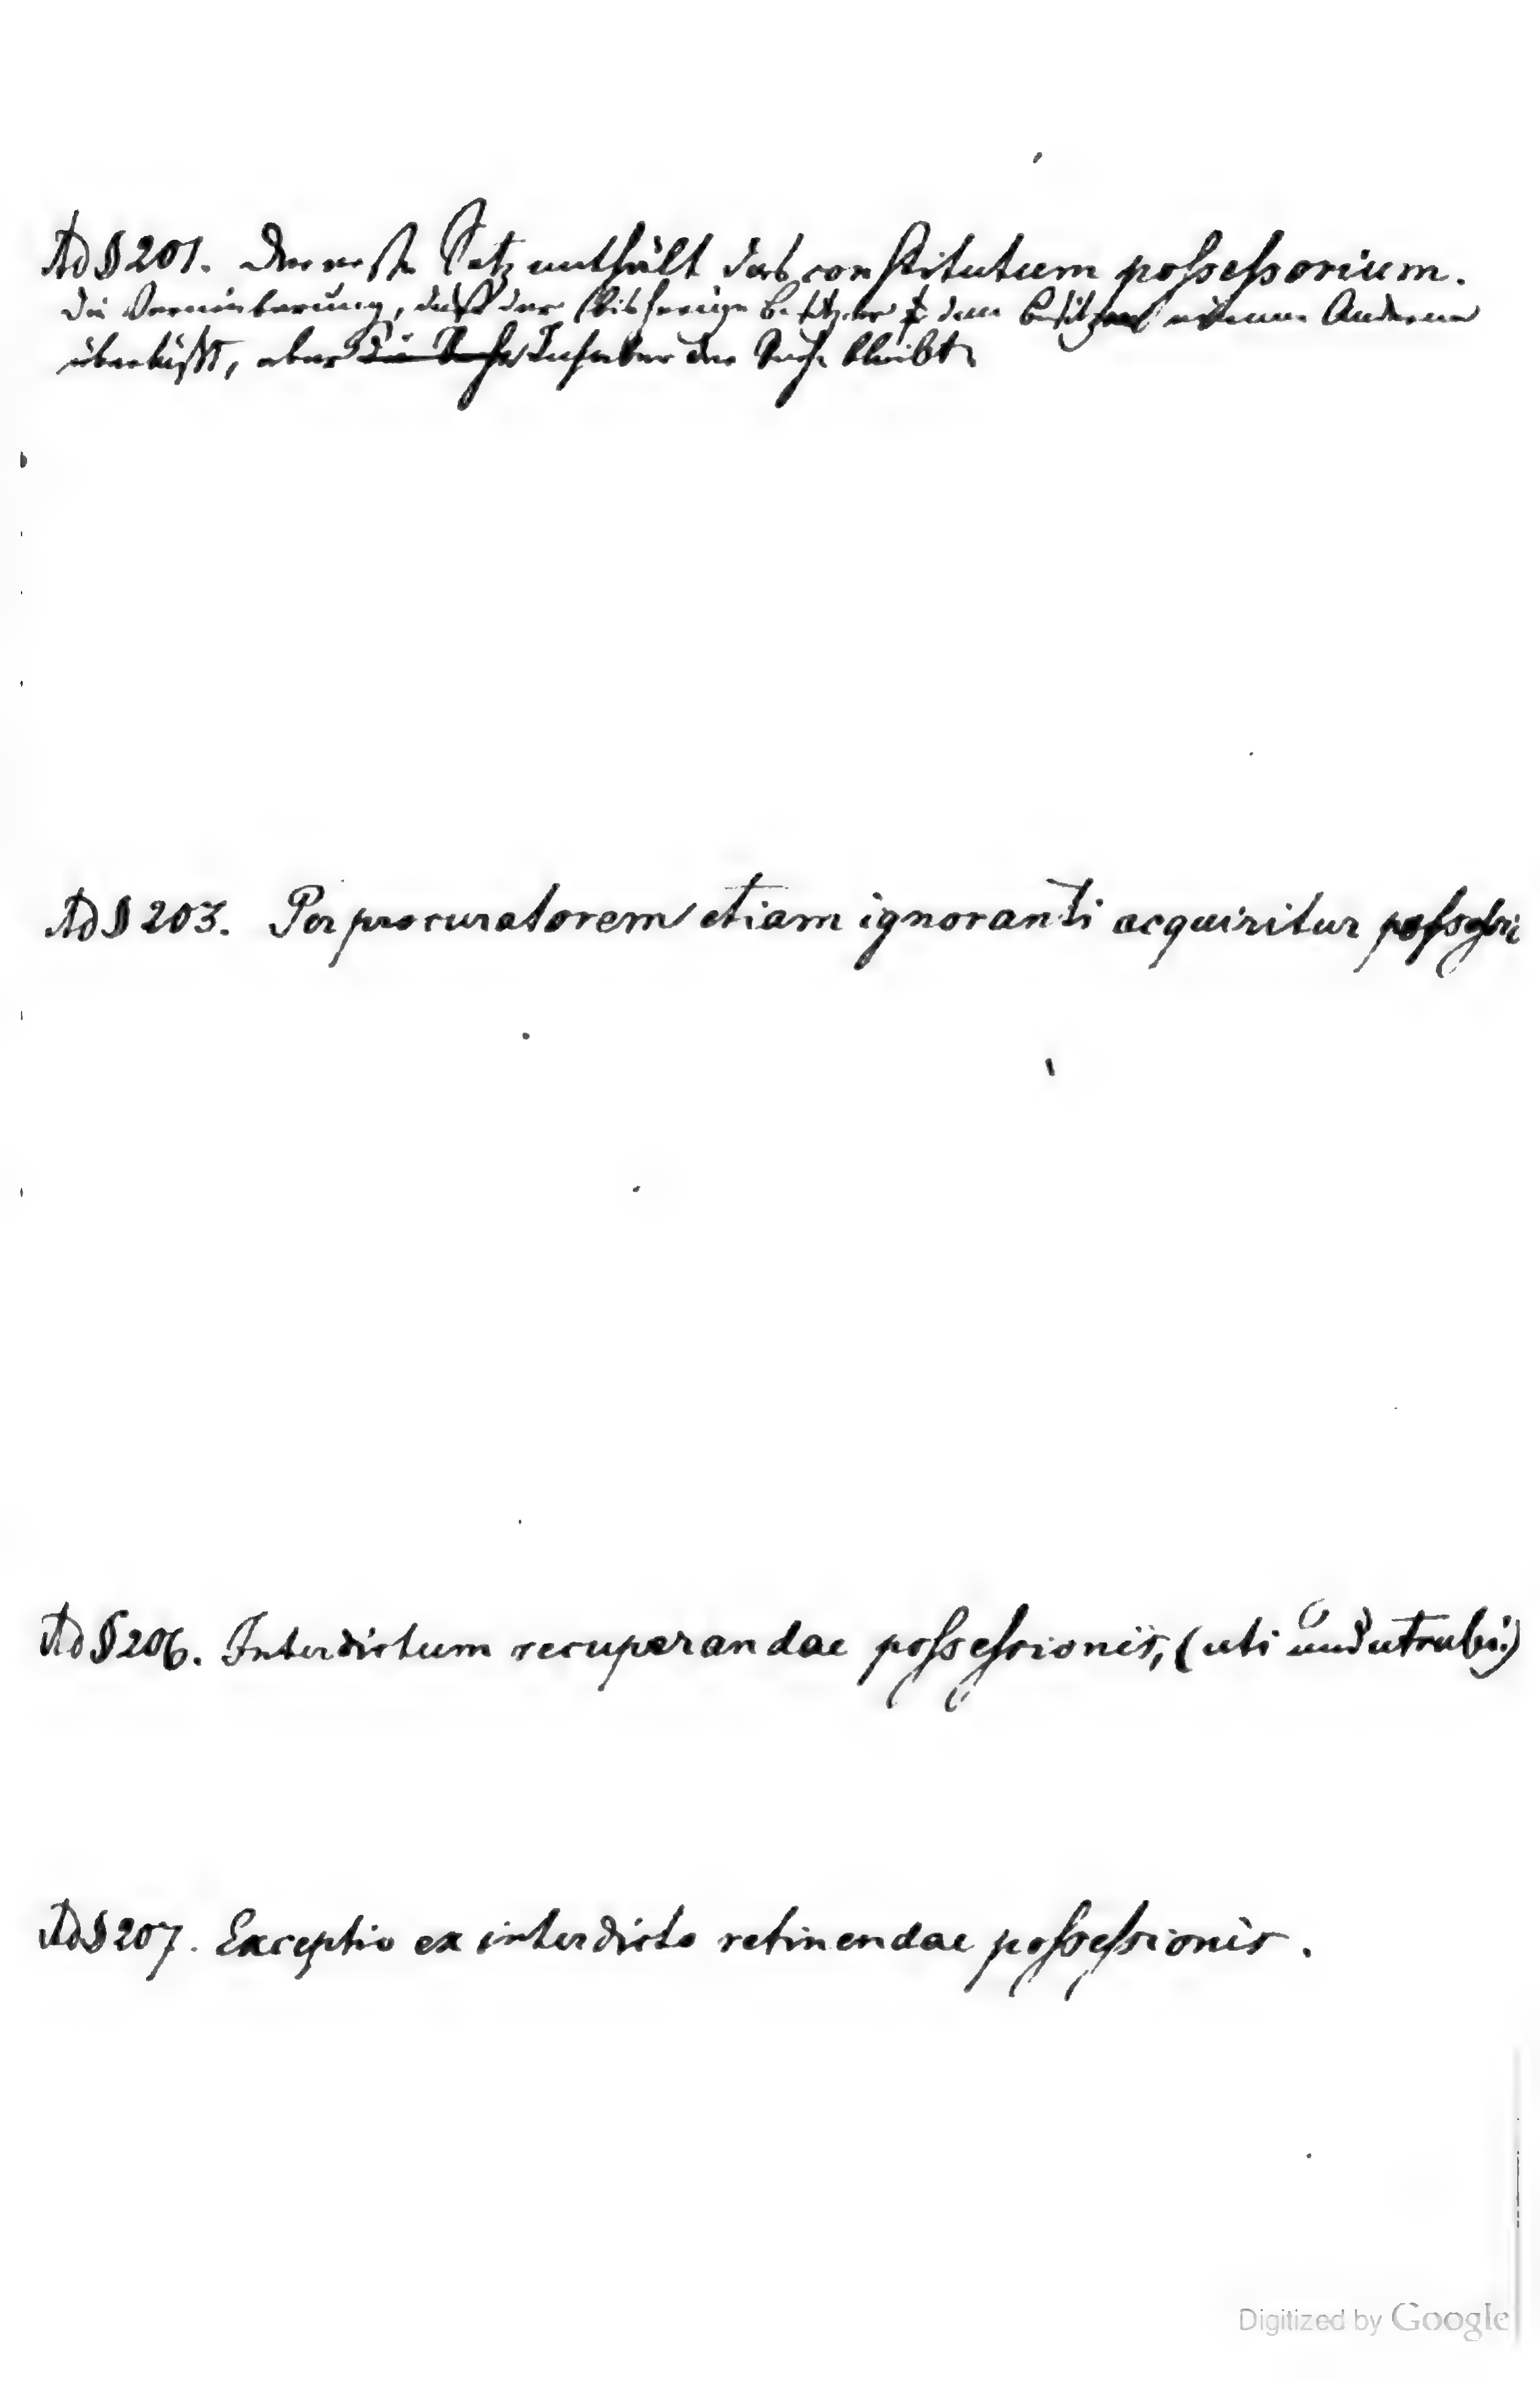 Ad § 201. Der erste Satz enthält das constitutum possessorium.
Die Vereinbarung, daß der bisherige Besitzer den Besitz einem Anderen
überläßt, aber die Sache Inhaber der Sache bleibt.
Ad § 203. Per procuratorem etiam ignoranti acquiritur possessi
Ad § 206. Interdictum recuperandae possessionis, (uti und utrubi)
Ad § 207. Exceptio ex interdicto retinendae possessionis.
Digitized by Google